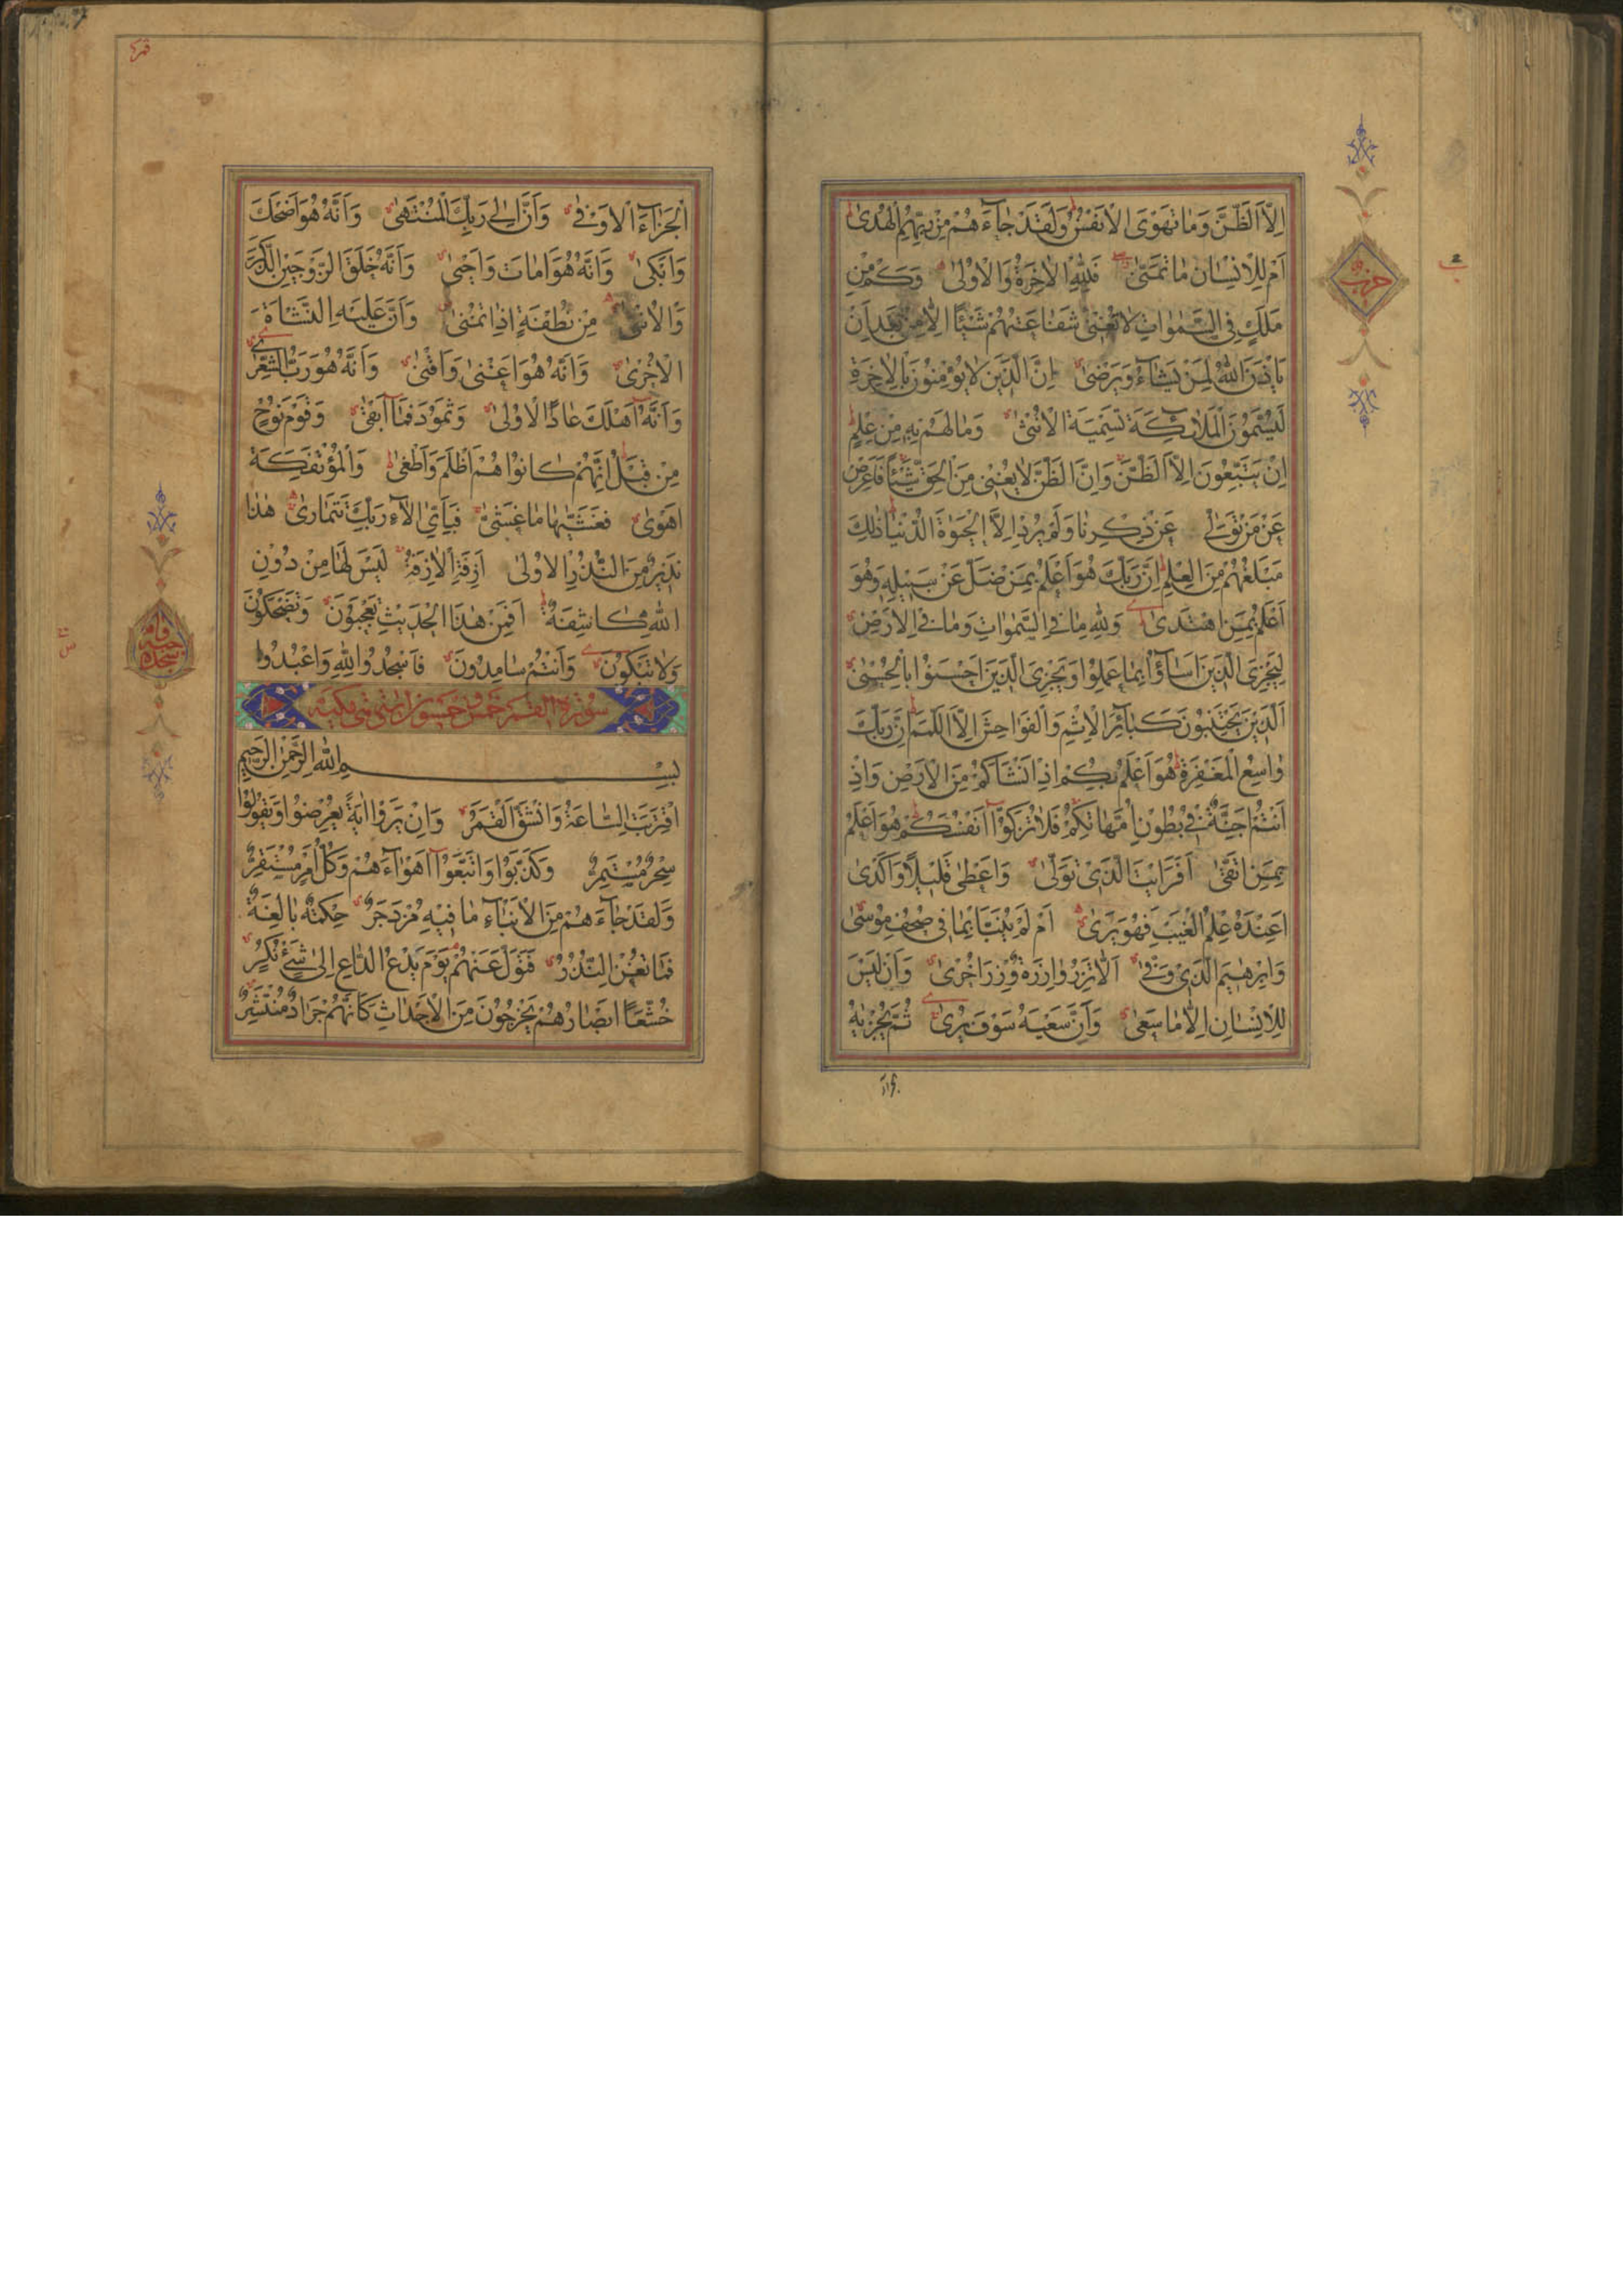 اِلَّا الظَّنَّ وَمَا تَهْوَى الْاَنْفُسُ وَلَقَدْ جَآءَهُمْ مِنْ رَبِّهِمُ الْهُدٰى
اَمْ لِلْاِنْسَانِ مَا تَمَنّٰى فَلِلّٰهِ الْاٰخِرَةُ وَالْاُوْلٰى وَكَمْ مِنْ
مَلَكٍ فِي السَّمٰوَاتِ لَا تُغْنِيْ شَفَاعَتُهُمْ شَيْئًا اِلَّا مِنْ بَعْدِ اَنْ
يَاْذَنَ اللّٰهُ لِمَنْ يَشَآءُ وَيَرْضٰى اِنَّ الَّذِيْنَ لَا يُؤْمِنُوْنَ بِالْاٰخِرَةِ
لَيُسَمُّوْنَ الْمَلٰٓئِكَةَ تَسْمِيَةَ الْاُنْثٰى وَمَا لَهُمْ بِهِ مِنْ عِلْمٍ
اِنْ يَتَّبِعُوْنَ اِلَّا الظَّنَّ وَاِنَّ الظَّنَّ لَا يُغْنِيْ مِنَ الْحَقِّ شَيْئًا فَاَعْرِضْ
عَنْ مَنْ تَوَلّٰى عَنْ ذِكْرِنَا وَلَمْ يُرِدْ اِلَّا الْحَيٰوةَ الدُّنْيَا ذٰلِكَ
مَبْلَغُهُمْ مِنَ الْعِلْمِ اِنَّ رَبَّكَ هُوَ اَعْلَمُ بِمَنْ ضَلَّ عَنْ سَبِيْلِهِ وَهُوَ
اَعْلَمُ بِمَنِ اهْتَدٰى وَلِلّٰهِ مَا فِي السَّمٰوَاتِ وَمَا فِي الْاَرْضِ
لِيَجْزِيَ الَّذِيْنَ اَسَآؤُا بِمَا عَمِلُوْا وَيَجْزِيَ الَّذِيْنَ اَحْسَنُوْا بِالْحُسْنٰى
اَلَّذِيْنَ يَجْتَنِبُوْنَ كَبَآئِرَ الْاِثْمِ وَالْفَوَاحِشَ اِلَّا اللَّمَمَ اِنَّ رَبَّكَ
وَاسِعُ الْمَغْفِرَةِ هُوَ اَعْلَمُ بِكُمْ اِذْ اَنْشَاَكُمْ مِنَ الْاَرْضِ وَاِذْ
اَنْتُمْ اَجِنَّةٌ فِيْ بُطُوْنِ اُمَّهَاتِكُمْ فَلَا تُزَكُّوْٓا اَنْفُسَكُمْ هُوَ اَعْلَمُ
بِمَنِ اتَّقٰى اَفَرَاَيْتَ الَّذِيْ تَوَلّٰى وَاَعْطٰى قَلِيْلًا وَاَكْدٰى
اَعِنْدَهُ عِلْمُ الْغَيْبِ فَهُوَ يَرٰى اَمْ لَمْ يُنَبَّاْ بِمَا فِيْ صُحُفِ مُوْسٰى
وَاِبْرٰهِيْمَ الَّذِيْ وَفّٰى اَلَّا تَزِرُ وَازِرَةٌ وِزْرَ اُخْرٰى وَاَنْ لَيْسَ
لِلْاِنْسَانِ اِلَّا مَا سَعٰى وَاَنَّ سَعْيَهُ سَوْفَ يُرٰى ثُمَّ يُجْزٰيهُ
حزب
اَلْجَزَآءَ الْاَوْفٰى وَاَنَّ اِلٰى رَبِّكَ الْمُنْتَهٰى وَاَنَّهُ هُوَ اَضْحَكَ
وَاَبْكٰى وَاَنَّهُ هُوَ اَمَاتَ وَاَحْيٰى وَاَنَّهُ خَلَقَ الزَّوْجَيْنِ الذَّكَرَ
وَالْاُنْثٰى مِنْ نُطْفَةٍ اِذَا تُمْنٰى وَاَنَّ عَلَيْهِ النَّشْاَةَ
الْاُخْرٰى وَاَنَّهُ هُوَ اَغْنٰى وَاَقْنٰى وَاَنَّهُ هُوَ رَبُّ الشِّعْرٰى
وَاَنَّهٓ اَهْلَكَ عَادًا الْاُوْلٰى وَثَمُوْدَ فَمَآ اَبْقٰى وَقَوْمَ نُوْحٍ
مِنْ قَبْلُ اِنَّهُمْ كَانُوْا هُمْ اَظْلَمَ وَاَطْغٰى وَالْمُؤْتَفِكَةَ
اَهْوٰى فَغَشّٰيهَا مَا غَشّٰى فَبِاَيِّ اٰلَآءِ رَبِّكَ تَتَمَارٰى هٰذَا
نَذِيْرٌ مِنَ النُّذُرِ الْاُوْلٰى اَزِفَةِ الْاٰزِفَةُ لَيْسَ لَهَا مِنْ دُوْنِ
اللّٰهِ كَاشِفَةٌ اَفَمِنْ هٰذَا الْحَدِيْثِ تَعْجَبُوْنَ وَتَضْحَكُوْنَ
وَلَا تَبْكُوْنَ وَاَنْتُمْ سَامِدُوْنَ فَاسْجُدُوْا لِلّٰهِ وَاعْبُدُوْا
سورة القمر خمس وخمسون اية وهي مكية
بِسْمِ اللّٰهِ الرَّحْمٰنِ الرَّحِيْمِ
اقْتَرَبَتِ السَّاعَةُ وَانْشَقَّ الْقَمَرُ وَاِنْ يَرَوْا اٰيَةً يُعْرِضُوْا وَيَقُوْلُوْا
سِحْرٌ مُسْتَمِرٌّ وَكَذَّبُوْا وَاتَّبَعُوْٓا اَهْوَآءَهُمْ وَكُلُّ اَمْرٍ مُسْتَقِرٌّ
وَلَقَدْ جَآءَهُمْ مِنَ الْاَنْبَآءِ مَا فِيْهِ مُزْدَجَرٌ حِكْمَةٌ بَالِغَةٌ
فَمَا تُغْنِ النُّذُرُ فَتَوَلَّ عَنْهُمْ يَوْمَ يَدْعُ الدَّاعِ اِلٰى شَيْءٍ نُكُرٍ
خُشَّعًا اَبْصَارُهُمْ يَخْرُجُوْنَ مِنَ الْاَجْدَاثِ كَاَنَّهُمْ جَرَادٌ مُنْتَشِرٌ
سجده